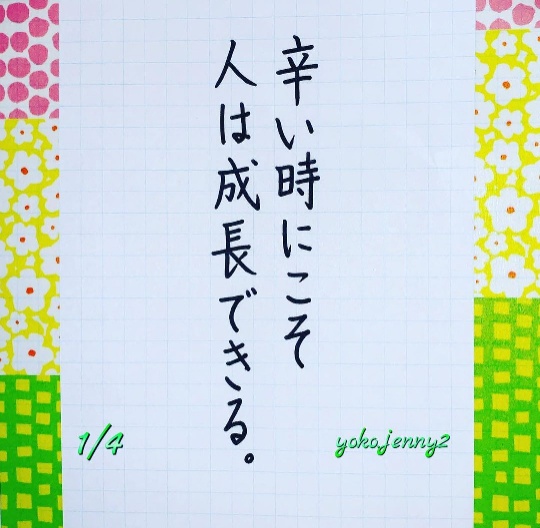 辛い時にこそ
人は成長できる。
1/4
yoko.jenny2